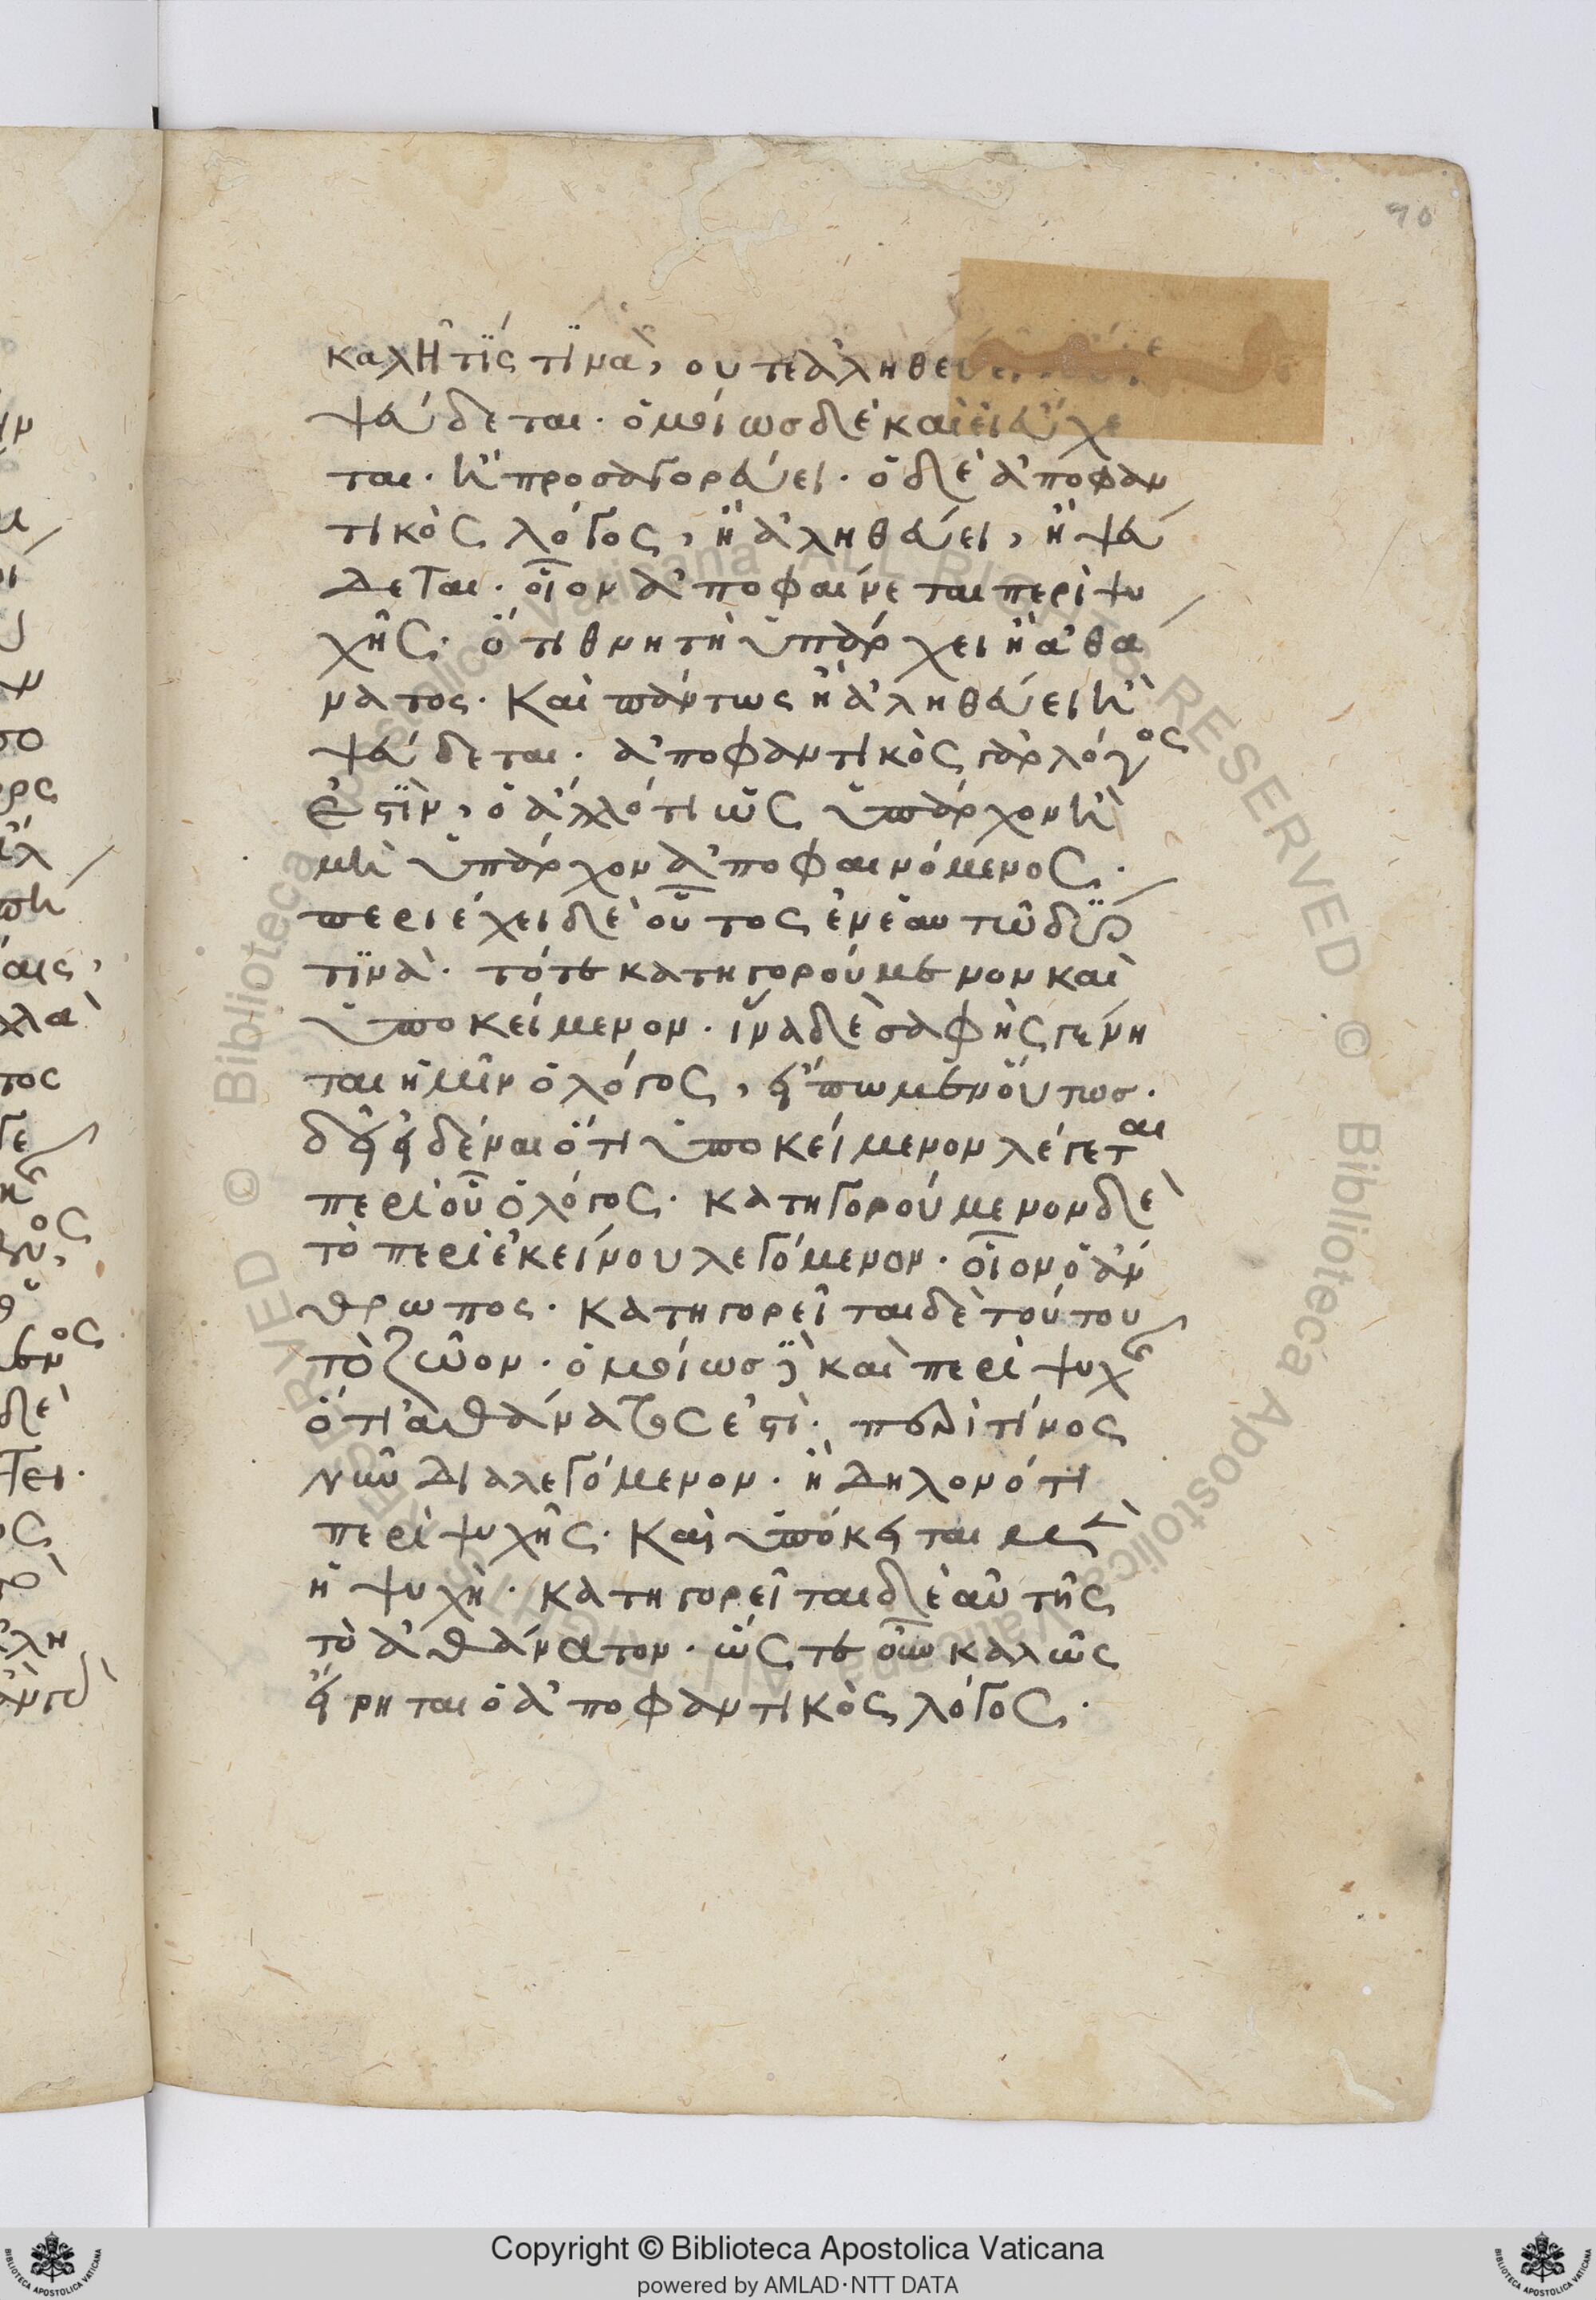 90
καλῆ τίς τϊνὰ, ουτε ἀληθεύει
ψεύδεται. ὁμοίως δὲ καὶ εἰ εὔχε
ται. ἢ προσαγορεύει. ὁ δὲ ἀποφαν
τικὸς λόγος, ἢ ἀληθεύει, ἢ ψεύ
δεται. οἷον ἀποφαίνεται περὶ ψυ
χῆς. ὅτι θνητὴ ὑπάρχει ἢ ἀθά
νατος. Καὶ πάντως ἢ ἀληθεύει ἢ
ψεύδεται. ἀποφαντικὸς γὰρ λόγος
ἐστϊν, ὁ ἄλλό τι ὡς ὑπάρχον ἢ
μὴ ὑπάρχον ἀποφαινόμενος.
περιέχει δὲ οὗτος ἐν ἑαυτῶ δύο
τϊνὰ. τό τε κατηγορούμενον καὶ
ὑποκείμενον. ἵνα δὲ σαφὴς γένη
ται ἡμῖν ὁ λόγος, εἴπωμεν οὕτως.
δεῖ εἰδέναι ὅτι ὑποκείμενον λέγεται
περὶ οὗ ὁ λόγος. κατηγορούμενον δὲ
τὸ περὶ ἐκείνου λεγόμενον. οἷον ὁ ἄν
θρωπος. κατηγορεῖται δὲ τούτου
τὸ ζῶον. ὁμοίως δὲ καὶ περὶ ψυχῆς
ὅτι ἀθάνατος ἐστὶ. περί τινος
νῦν διαλεγόμενον. ἢ δηλονότι
περὶ ψυχῆς. Καὶ ὑπόκειται μὲν
ἡ ψυχὴ. κατηγορεῖται δὲ αὐτῆς
τὸ ἀθάνατον. ὥς τε οὖν καλῶς
εἴρηται ὁ ἀποφαντικὸς λόγος.
Copyright © Biblioteca Apostolica Vaticana
powered by AMLAD·NTT DATA